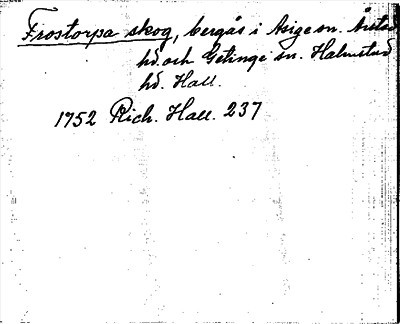 Frostorpa skog, bergås i Asige sn. Årstad
hd. och Getinge sn. Halmstad
hd. Hall.
1752 Rich. Hall. 237